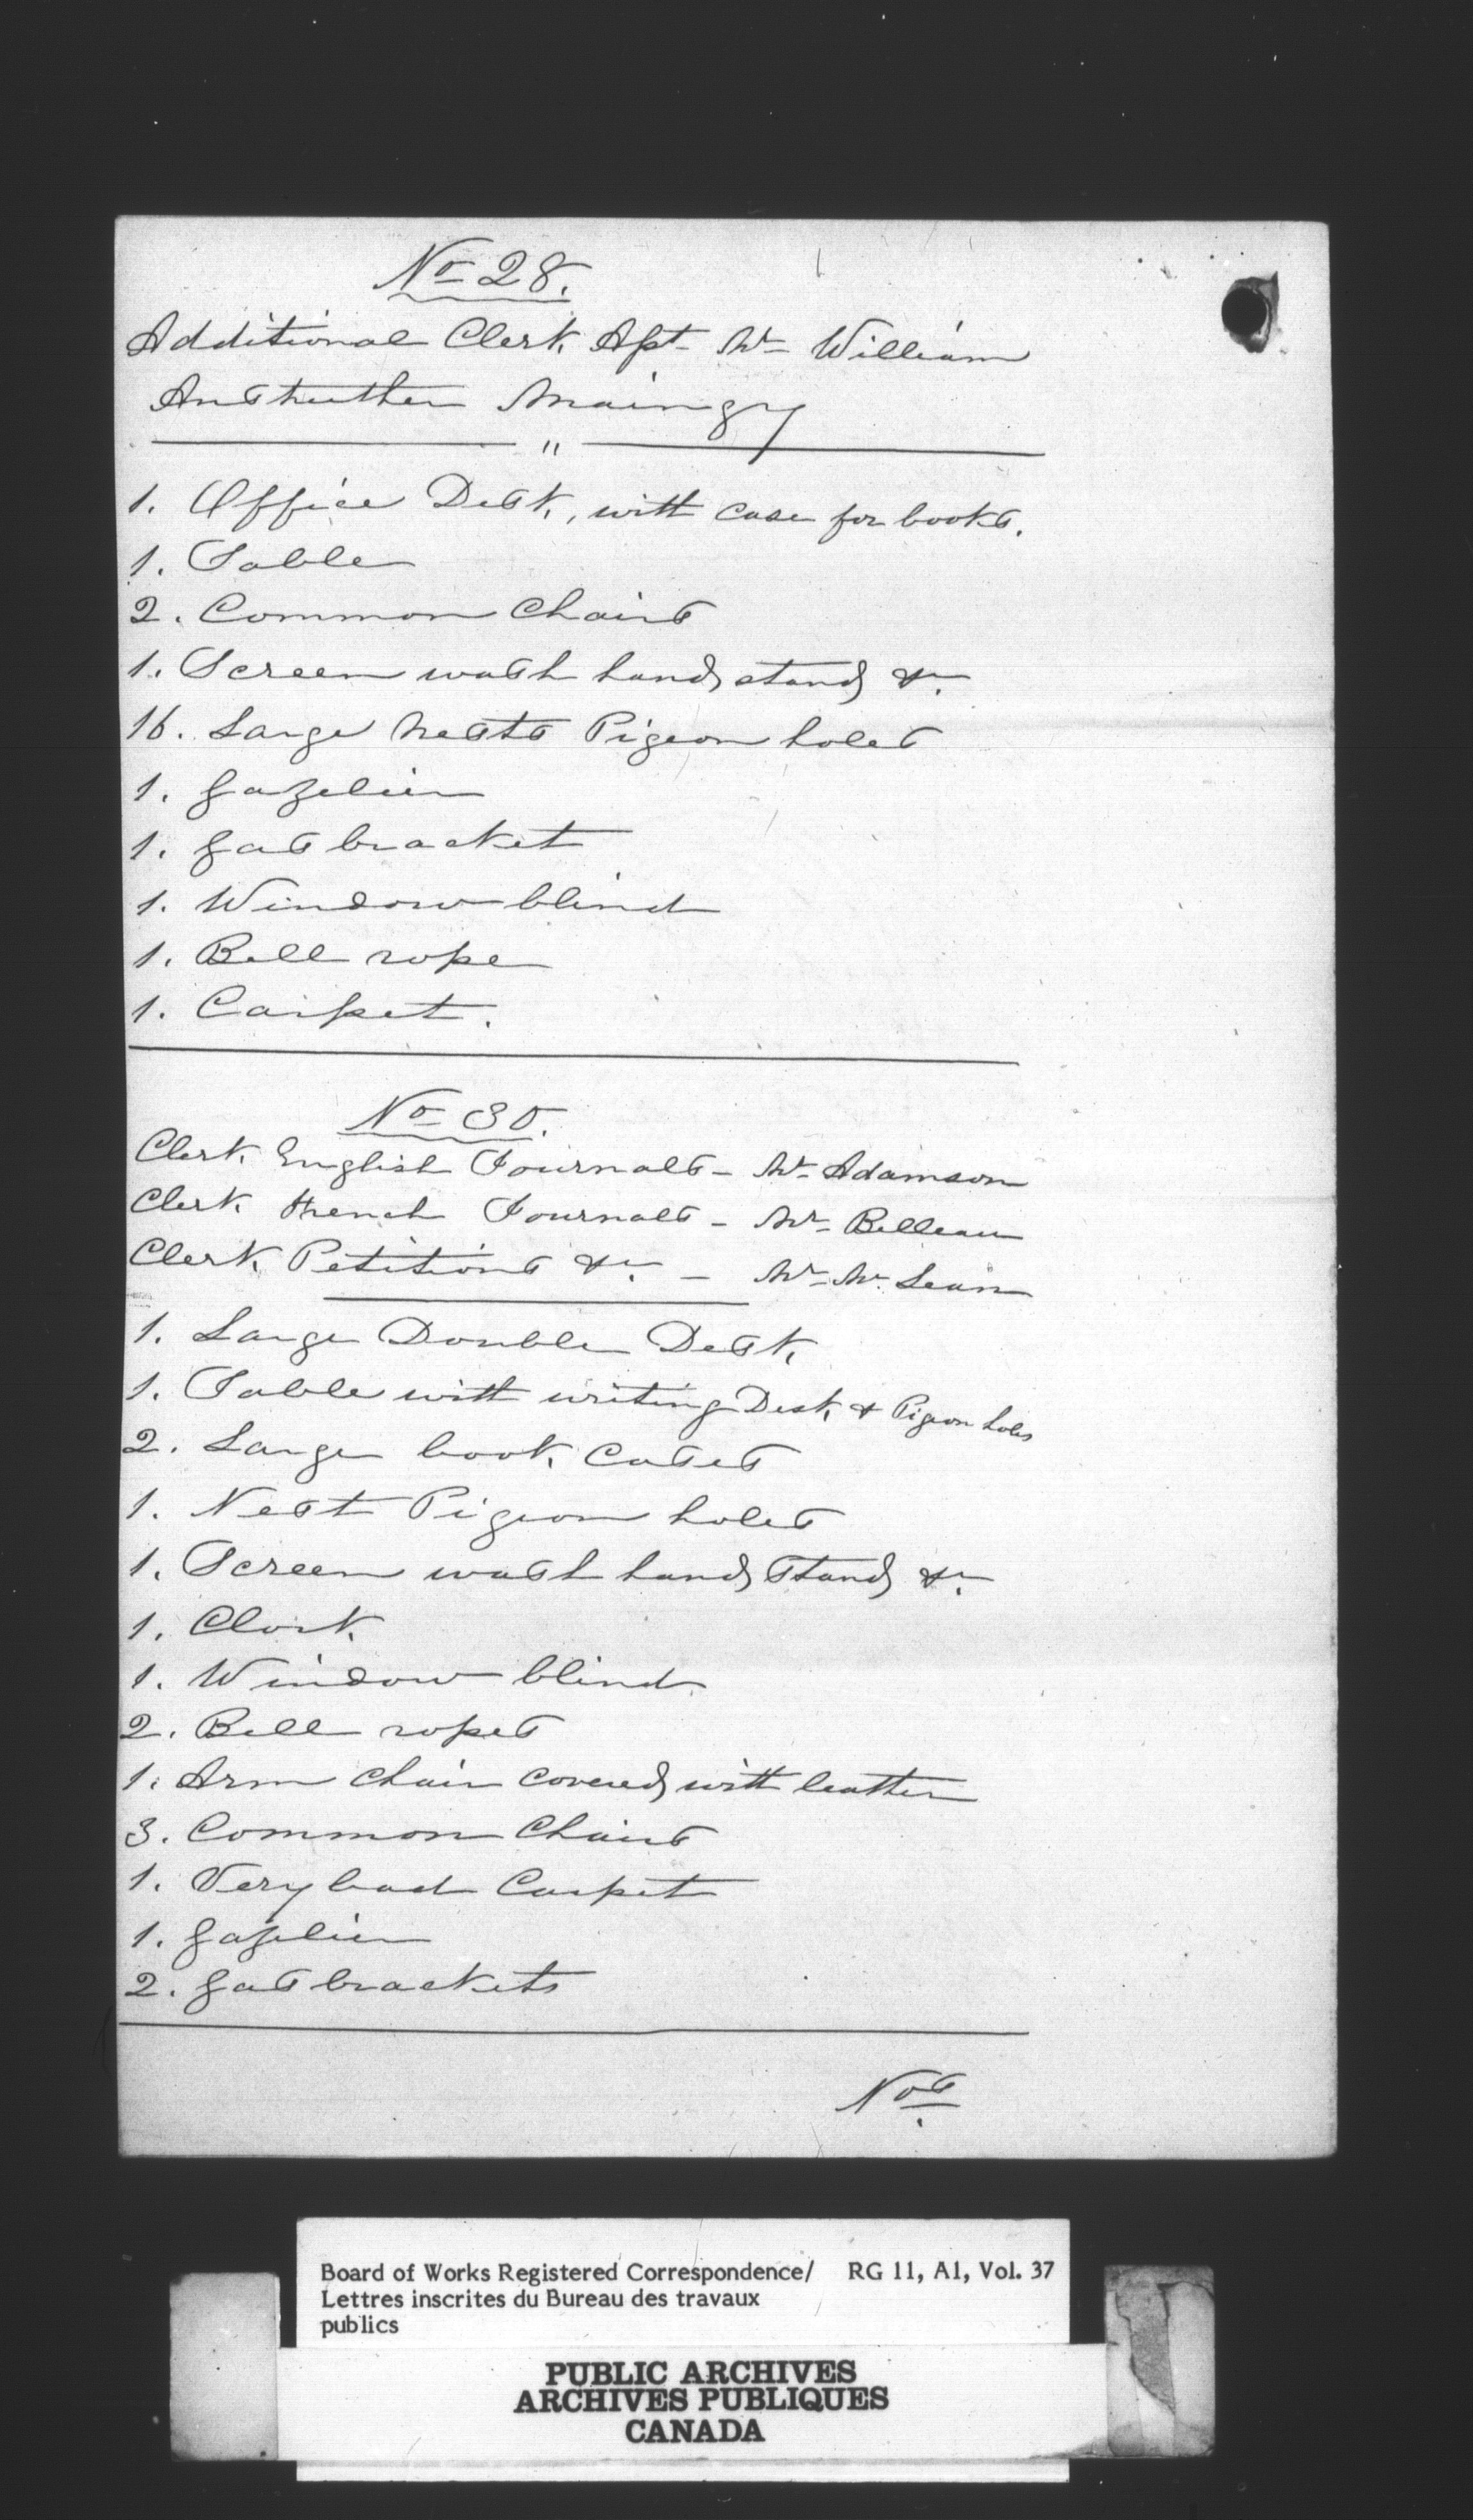 No 28.
Additional Clerk Apt Mr William
Anstruther Maingy
"
1. Office Desk, with case for books.
1. Table
2. Common Chairs
1. Screen wash hand stand &c.
16. Large Nests Pigeon holes
1. gazelier
1. gas bracket
1. Window blind
1. Bell rope
1. Carpet.
No 30.
Clerk English Journals - Mr Adamson
Clerk French Journals - Mr Belleau
Clerk Petitions &c. - Mr Mc Lean
1. Large Double Desk
1. Table with writing Desk & Pigeon holes
2. Large book Cases
1. Nest Pigeon holes
1. Screen wash hand Stand &c.
1. Clock
1. Window blind
2. Bell ropes
1. Arm Chair Covered with leather
3. Common Chairs
1. Very bad Carpet
1. gazelier
2. gas brackets
Nos
Board of Works Registered Correspondence/ RG 11, A1, Vol. 37
Lettres inscrites du Bureau des travaux
publics
PUBLIC ARCHIVES
ARCHIVES PUBLIQUES
CANADA